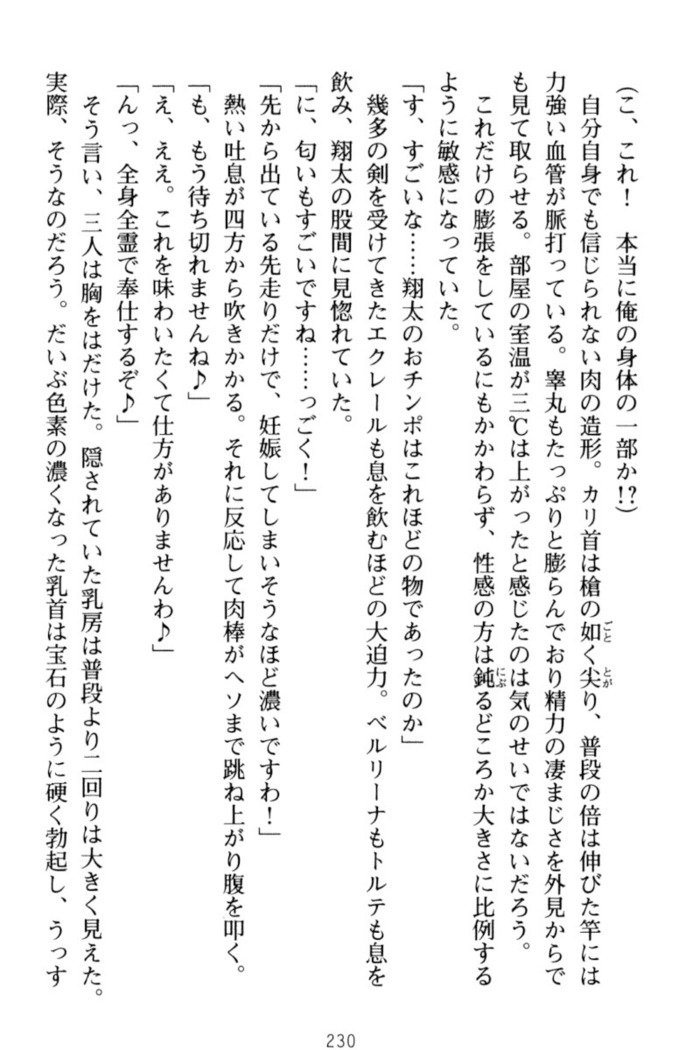 （こ、これ！　本当に俺の身体の一部か!?）
　自分自身でも信じられない肉の造形。カリ首は槍の如く尖り、普段の倍は伸びた竿には
力強い血管が脈打っている。睾丸もたっぷりと膨らんでおり精力の凄まじさを外見からで
も見て取らせる。部屋の室温が三℃は上がったと感じたのは気のせいではないだろう。
　これだけの膨張をしているにもかかわらず、性感の方は鈍るどころか大きさに比例する
ように敏感になっていた。
「す、すごいな……翔太のおチンポはこれほどの物であったのか」
　幾多の剣を受けてきたエクレールも息を飲むほどの大迫力。ベルリーナもトルテも息を
飲み、翔太の股間に見惚れていた。
「に、匂いもすごいですね……っごく！」
「先から出ている先走りだけで、妊娠してしまいそうなほど濃いですわ！」
　熱い吐息が四方から吹きかかる。それに反応して肉棒がヘソまで跳ね上がり腹を叩く。
「も、もう待ち切れませんね♪」
「え、ええ。これを味わいたくて仕方がありませんわ♪」
「んっ、全身全霊で奉仕するぞ♪」
　そう言い、三人は胸をはだけた。隠されていた乳房は普段より二回りは大きく見えた。
実際、そうなのだろう。だいぶ色素の濃くなった乳首は宝石のように硬く勃起し、うっす
ごと
とが
にぶ
230